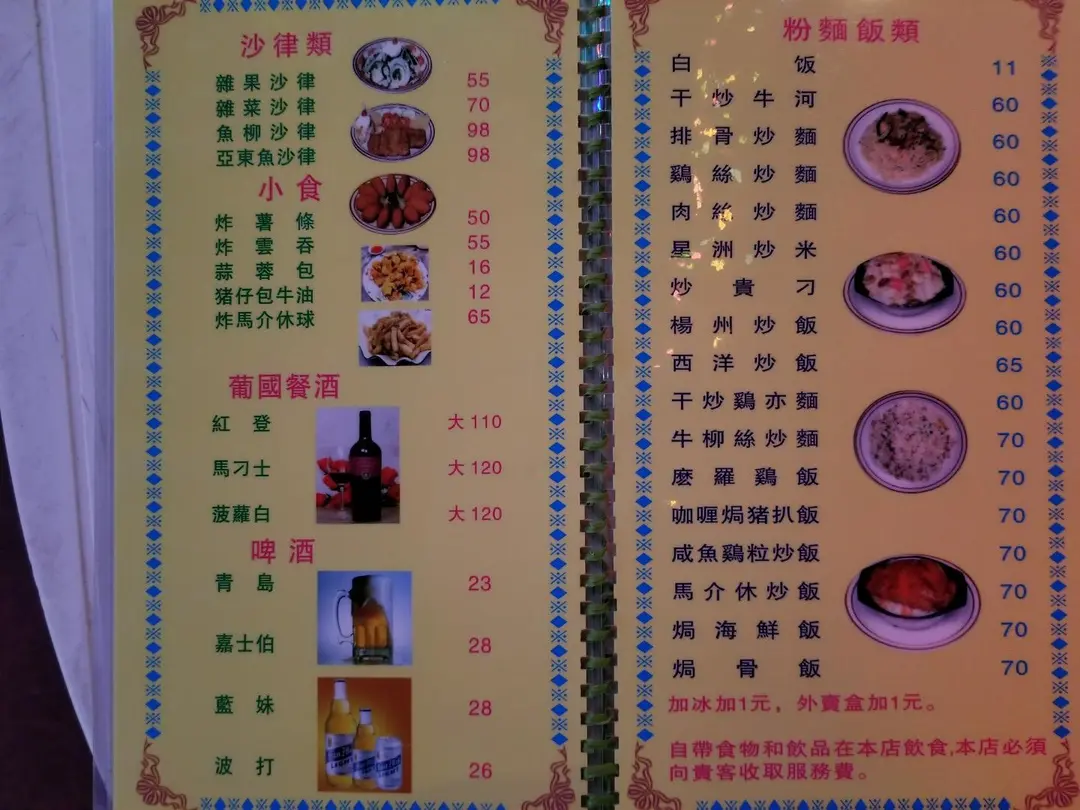 沙律類
雜果沙律 55
雜菜沙律 70
魚柳沙律 98
亞東魚沙律 98
小食
炸薯條 50
炸雲吞 55
蒜蓉包 16
猪仔包牛油 12
炸馬介休球 65
葡國餐酒
紅登 大 110
馬刁士 大 120
菠蘿白 大 120
啤酒
青島 23
嘉士伯 28
藍妹 28
波打 26
粉麵飯類
白饭 11
干炒牛河 60
排骨炒麵 60
鷄絲炒麵 60
肉絲炒麵 60
星洲炒米 60
炒貴刁 60
楊州炒飯 60
西洋炒飯 65
干炒鷄亦麵 60
牛柳絲炒麵 70
麽羅鷄飯 70
咖喱焗猪扒飯 70
咸魚鷄粒炒飯 70
馬介休炒飯 70
焗海鮮飯 70
焗骨飯 70
加冰加1元，外賣盒加1元。
自帶食物和飲品在本店飲食,本店必須
向貴客收取服務費。